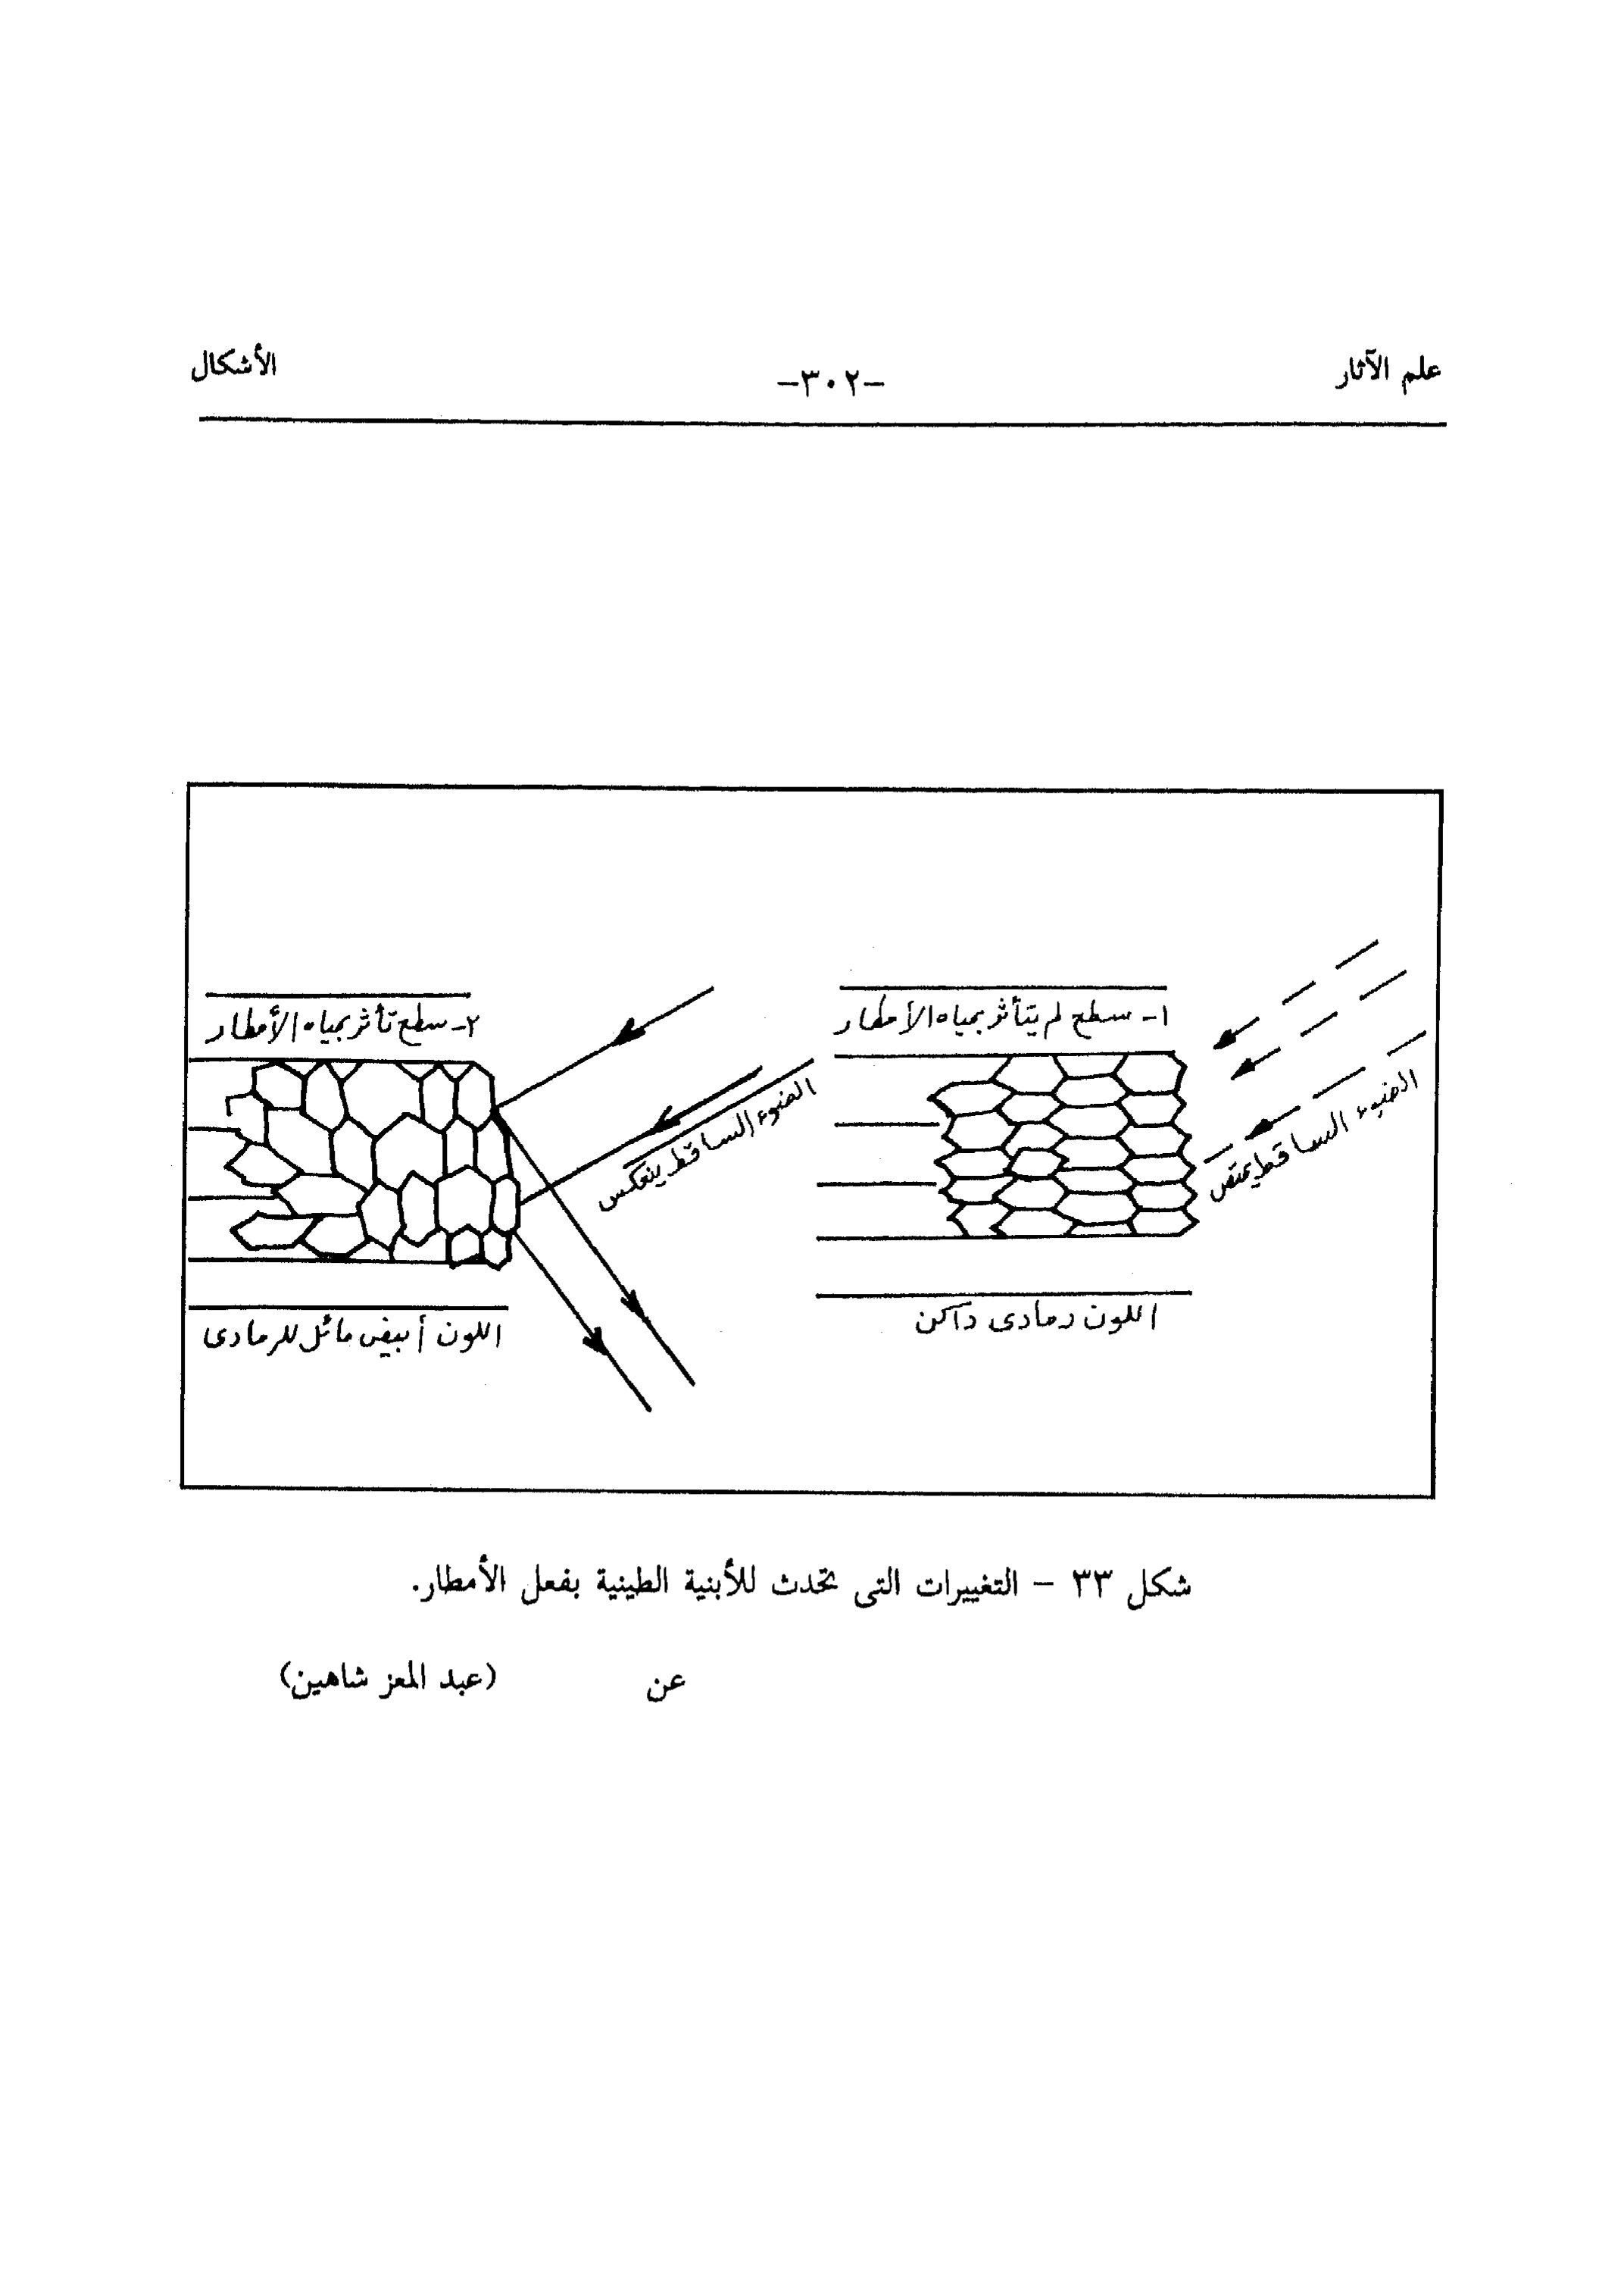 علم الآثار
-٣٠٢-
الأشكال
١- سطح لم يتأثر بمياه الأمطار
الضوء الساقط يمتص
اللون رمادى داكن
٢- سطح تأثر بمياه الأمطار
الضوء الساقط ينعكس
اللون أبيض مائل للرمادى
شكل ٣٣ - التغييرات التى تحدث للأبنية الطينية بفعل الأمطار.
عن (عبد المعز شاهين)